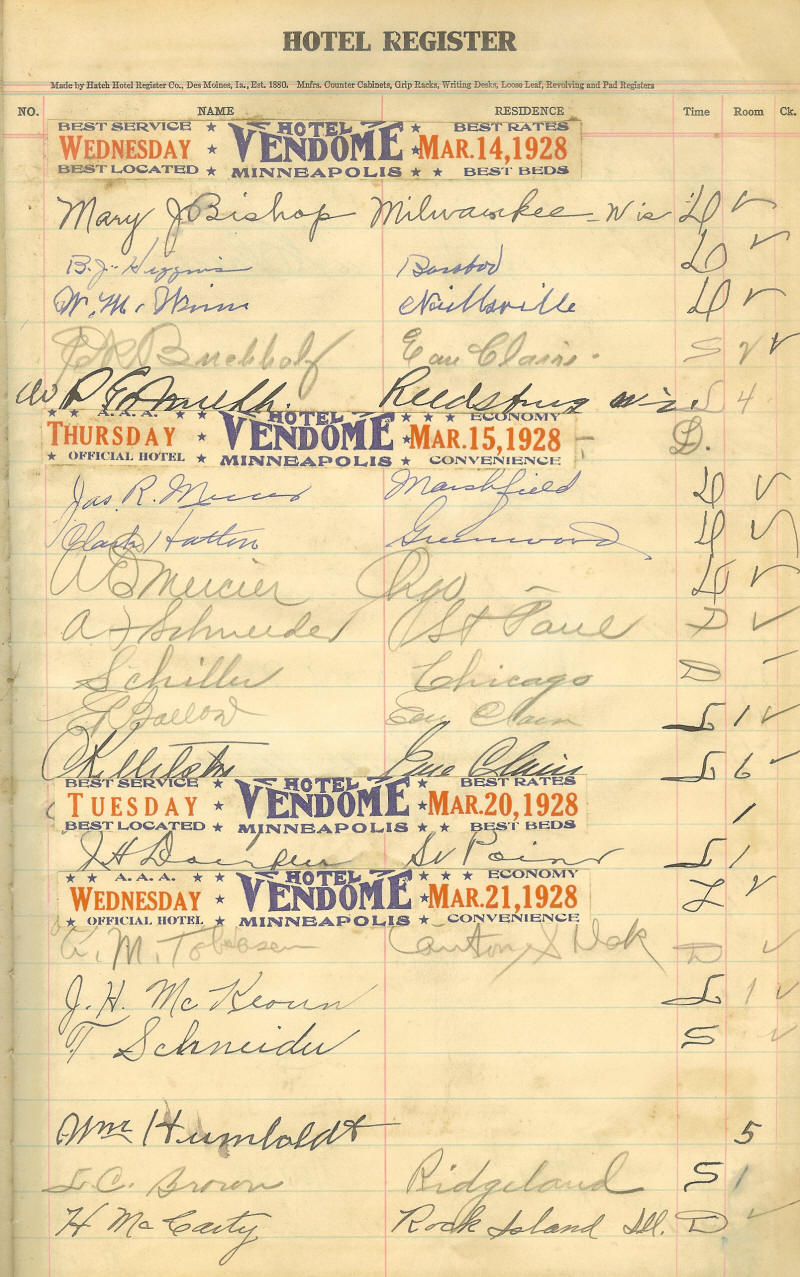 HOTEL REGISTER
Made by Hatch Hotel Register Co., Des Moines, Ia., Est. 1880. Mnfrs. Counter Cabinets, Grip Racks, Writing Desks, Loose Leaf, Revolving and Pad Registers
NO. NAME RESIDENCE Time Room Ck.
BEST SERVICE ★ HOTEL ★ BEST RATES
WEDNESDAY ★ VENDOME ★ MAR. 14, 1928
BEST LOCATED ★ MINNEAPOLIS ★ ★ BEST BEDS
Mary J Bishop Milwaukee - Wis D ✓
B. J. Higgins L ✓
W. M. Neillsville D ✓
Buchholz Eau Claire. S 2 ✓
Reedsburg Wis. L 4
★ ★ A.A.A. ★ HOTEL ★ ★ ★ ECONOMY
THURSDAY ★ VENDOME ★ MAR. 15, 1928
★ OFFICIAL HOTEL ★ MINNEAPOLIS ★ CONVENIENCE
D.
Jas. R. Marshfield D ✓
Clark Hatton Greenwood D ✓
Mercier D ✓
A Schneider St Paul D ✓
Schiller Chicago D
Ballow Eau Claire L 1 ✓
Eau Claire L 6 ✓
BEST SERVICE ★ HOTEL ★ BEST RATES
TUESDAY ★ VENDOME ★ MAR. 20, 1928
BEST LOCATED ★ MINNEAPOLIS ★ ★ BEST BEDS
1
J H L 1
★ ★ A.A.A. ★ HOTEL ★ ★ ★ ECONOMY
WEDNESDAY ★ VENDOME ★ MAR. 21, 1928
★ OFFICIAL HOTEL ★ MINNEAPOLIS ★ CONVENIENCE
L ✓
M. Canton S Dak D ✓
J. H. McKeown L 1 ✓
T Schneider S ✓
Wm Humboldt 5
L. C. Brown Ridgeland S 1
H McCarty Rock Island Ill. D ✓